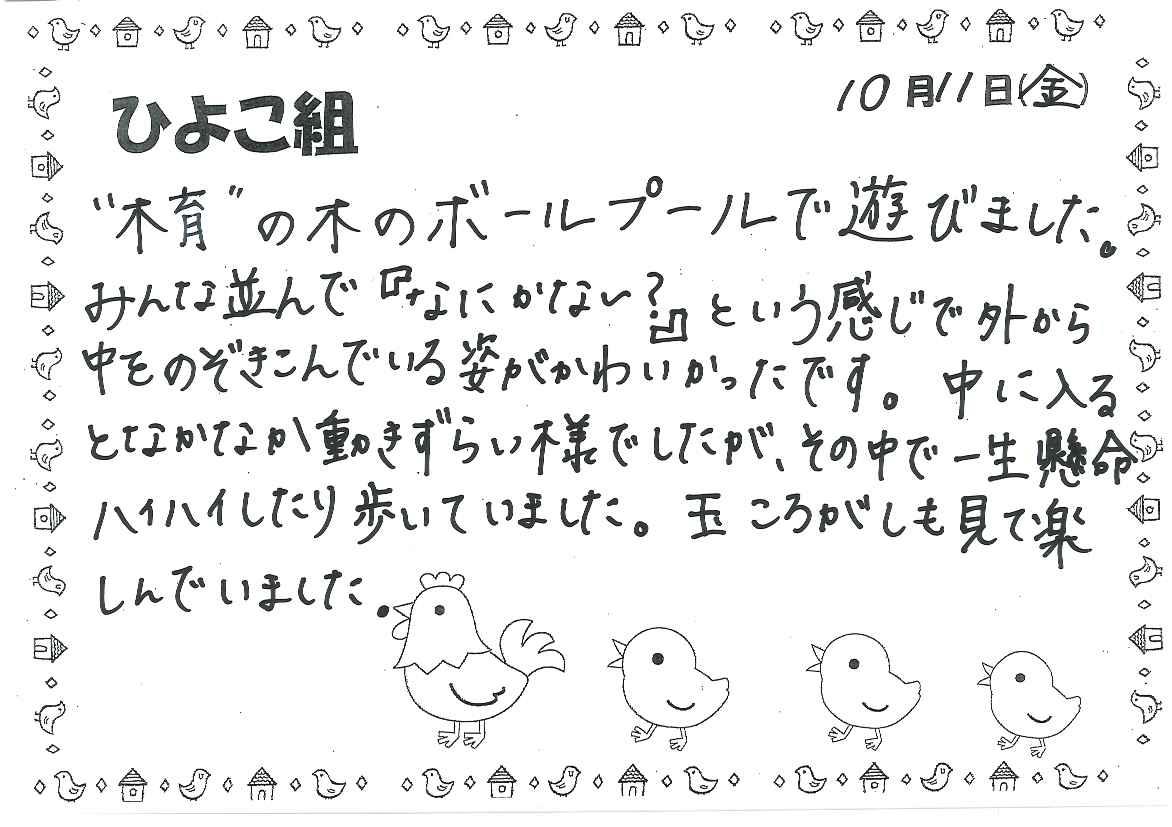 10月11日(金)
ひよこ組
"木育"の木のボールプールで遊びました。
みんな並んで『なにかない〜?』という感じで外から
中をのぞきこんでいる姿がかわいかったです。中に入る
となかなか動きずらい様でしたが、その中で一生懸命
ハイハイしたり歩いていました。玉ころがしも見て楽
しんでいました。